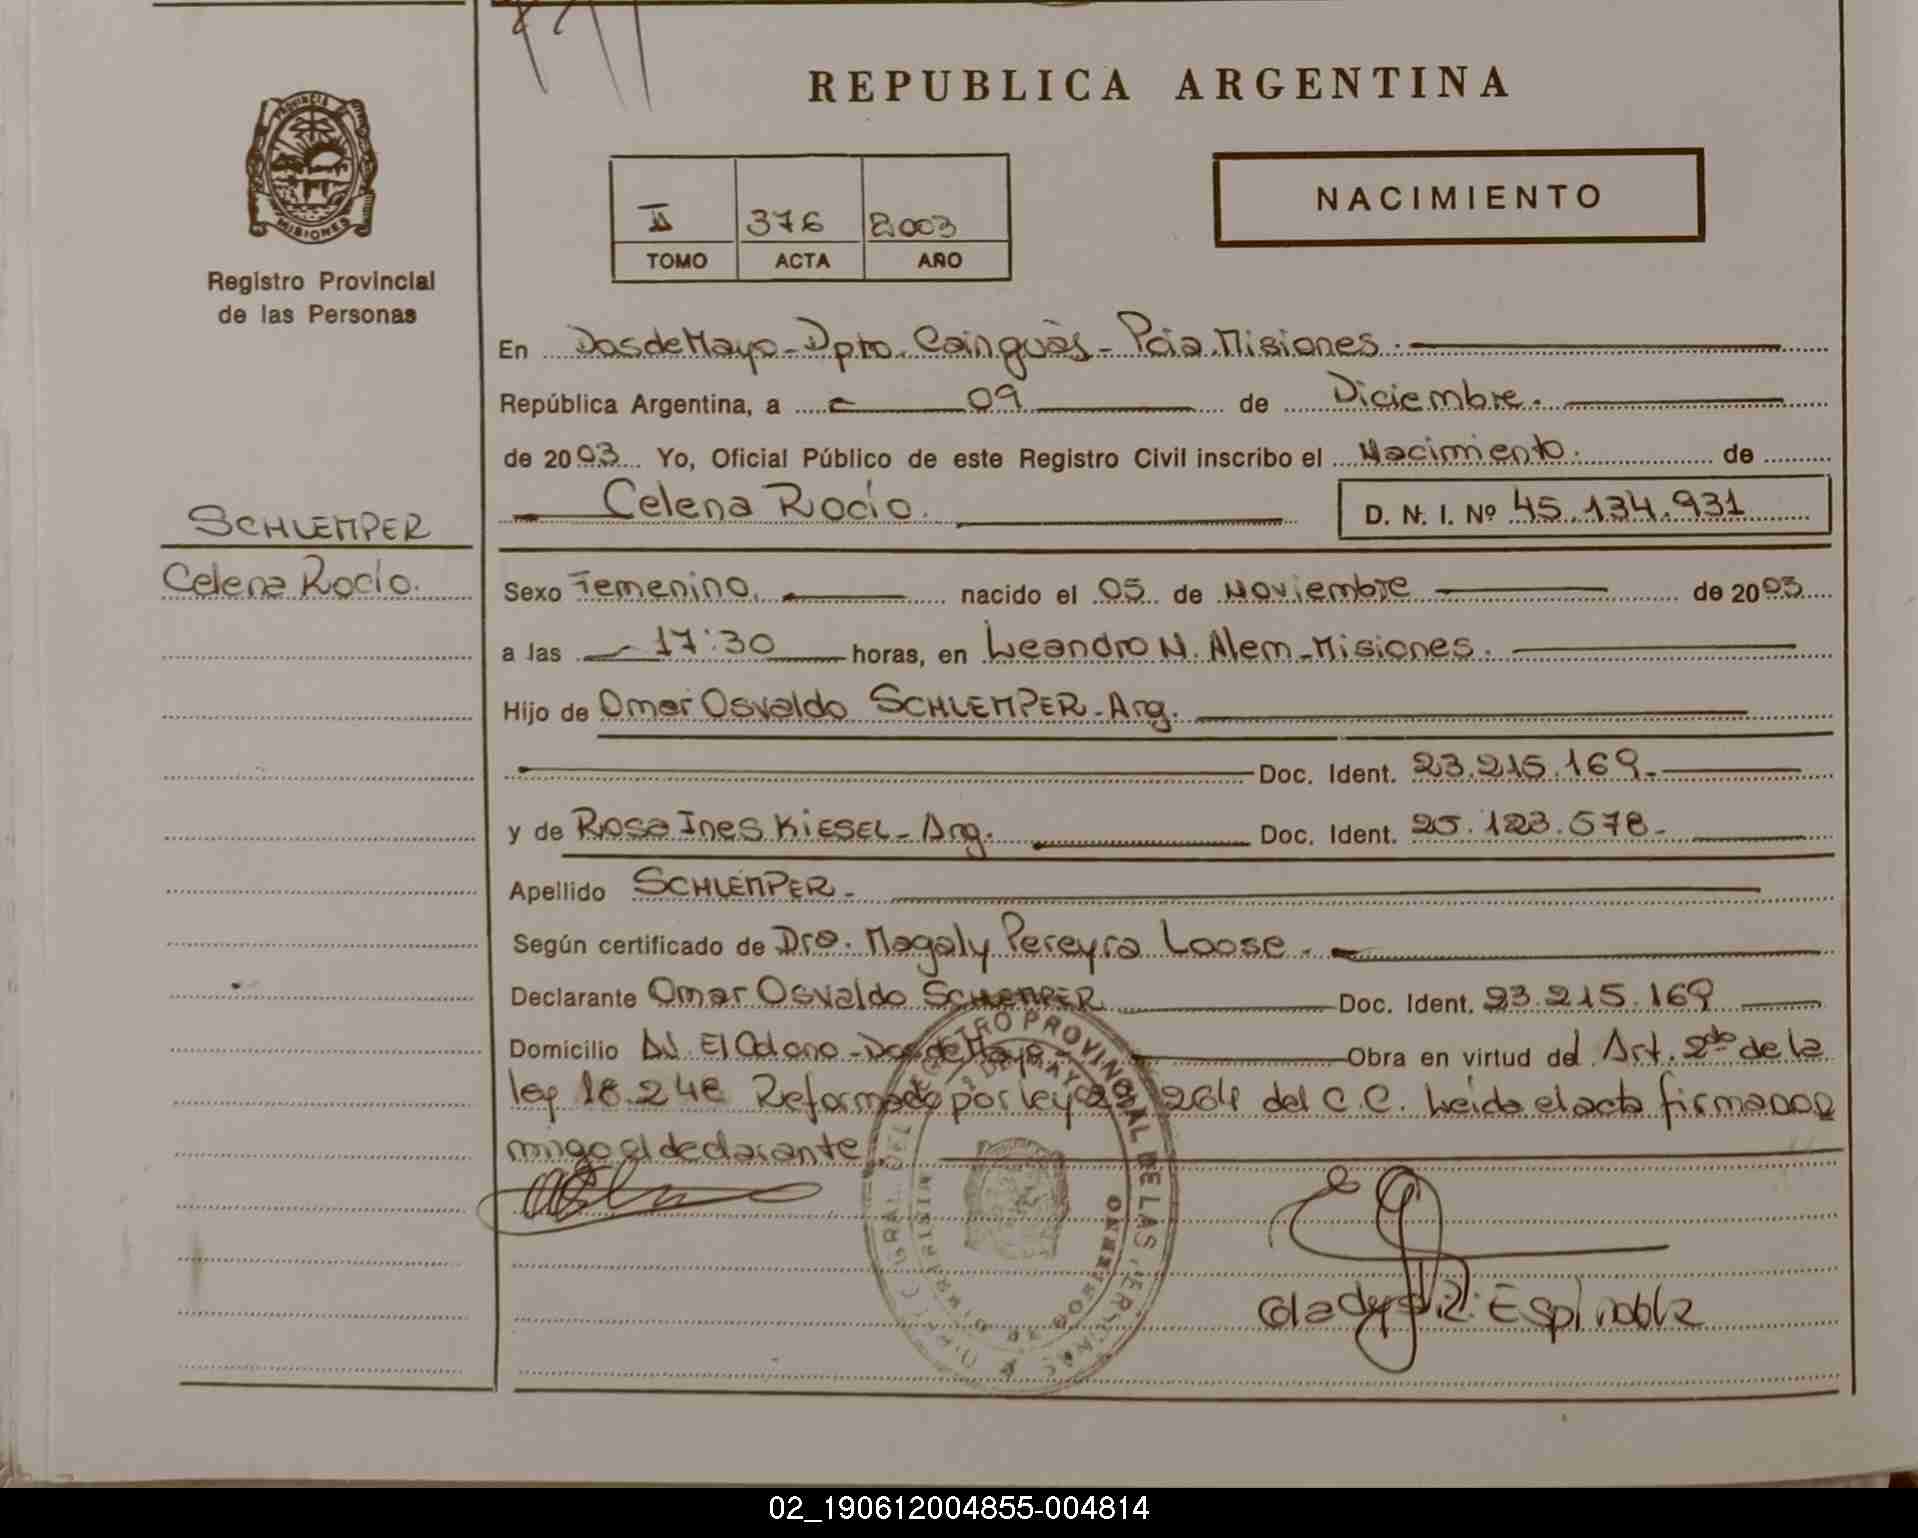 REPUBLICA ARGENTINA
PROVINCIA DE
MISIONES
Registro Provincial
de las Personas
II 376 2003
TOMO ACTA AÑO
NACIMIENTO
En Dos de Mayo - Dpto. Cainguás - Pcia. Misiones.
República Argentina, a 09 de Diciembre.
de 2003 Yo, Oficial Público de este Registro Civil inscribo el Nacimiento. de
Celena Rocío. D. N. I. Nº 45.134.931
SCHLEMPER
Celena Rocío.
Sexo Femenino. nacido el 05 de Noviembre de 2003
a las 17:30 horas, en Leandro N. Alem - Misiones.
Hijo de Omar Osvaldo SCHLEMPER - Arg.
Doc. Ident. 23.215.169.
y de Rosa Ines KIESEL - Arg. Doc. Ident. 25.123.578.
Apellido SCHLEMPER.
Según certificado de Dra. Magaly Pereyra Loose.
Declarante Omar Osvaldo SCHLEMPER Doc. Ident. 23.215.169
Domicilio Av. El Colono - Dos de Mayo - Obra en virtud del Art. 2do de la
ley 18.248 Reformado por ley 23.264 del C.C. Leida el acta firma con
migo el declarante.
REGISTRO PROVINCIAL DE LAS PERSONAS
2 DE MAYO
MISIONES
Gladys R. Espindola
02_190612004855-004814